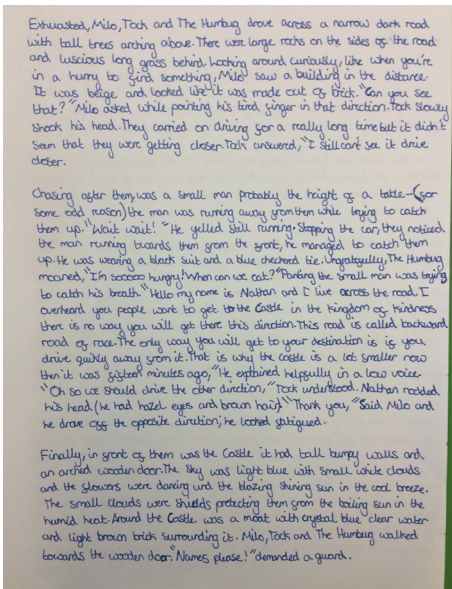 Exhuasbed, Milo, Tock and The Humbug drove across a narrow dark road
with tall trees arching above. There were large rocks on the sides of the road
and luscious long grass behind. Looking around curiously, like when you're
in a hurry to find something, Milo saw a building in the distance.
It was beige and looked like it was made out of brick. "Can you see
that?" Milo asked, while pointing his tired finger in that direction. Tock slowly
shook his head. They carried on driving for a really long time but it didn't
seam that they were getting closer. Tock answered, "I still can't see it drive
closer.
Chasing after them, was a small man probably the height of a table-(for
some odd reason) the man was running away from them while trying to catch
them up. "Wait wait! "He yelled still running. Stopping the car, they noticed
the man running towards them from the front, he managed to catch them
up. He was wearing a black suit and a blue checkered tie. Ungratefully, The Humbug
moaned, "I'm sooooo hungry! When can we eat?" Panting the small man was trying
to catch his breath. "Hello my name is Nathan and I live across the road. I
overheard you people want to get to the Castle in the kingdom of kindness
there is no way you will get there this direction. This road is called backward
road of race. The only way you will get to your destination is if you
drive quikly away from it. That is why the castle is a lot smaller now
then it was fifteen minutes ago, "He explained helpfully in a low voice.
"Oh so we should drive the other direction, "Tock understood. Nathan nodded
his head (he had hazel eyes and brown hair). "Thank you, "Said Milo and
he drove off the opposite direction; he looked fatigued.
Finally, in front of them was the Castle it had tall bumpy walls and
an arched wooden door. The sky was light blue with small white clouds
and the flowers were dancing und the blazing shining sun in the cool breeze.
The small clouds were shields protecting them from the boiling sun in the
humid heat. Around the Castle was a moat with crystal blue clear water
and light brown brick surrounding it. Milo, Tock and The Humbug walked
towards the wooden door. "Names please!" demanded a guard.